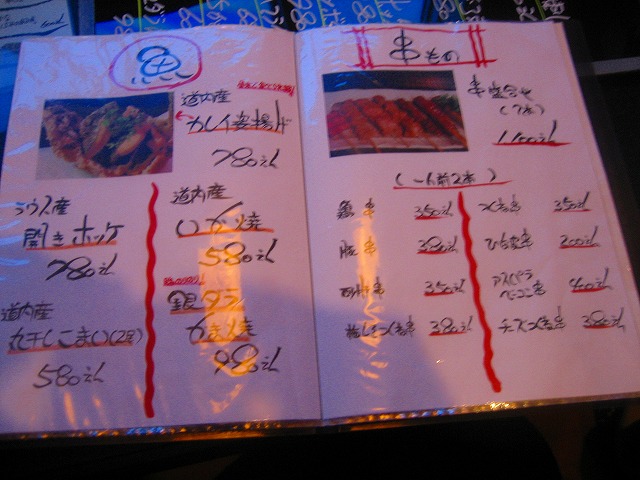 魚
道内産
カレイ姿揚げ
780えん
ラウス産
開きホッケ
780えん
道内産
いか焼
580えん
道内産
丸干しこまい(2尾)
580えん
銀ダラ
かま焼
980えん
串もの
串盛合せ
(7本)
1,100えん
(一人前2本)
鳥串 350えん
豚串 380えん
350えん
梅しそつくね串 380えん
つくね串 350えん
ひな皮串 200えん
アスパラ
ベーコン串 400えん
チーズつくね串 380えん